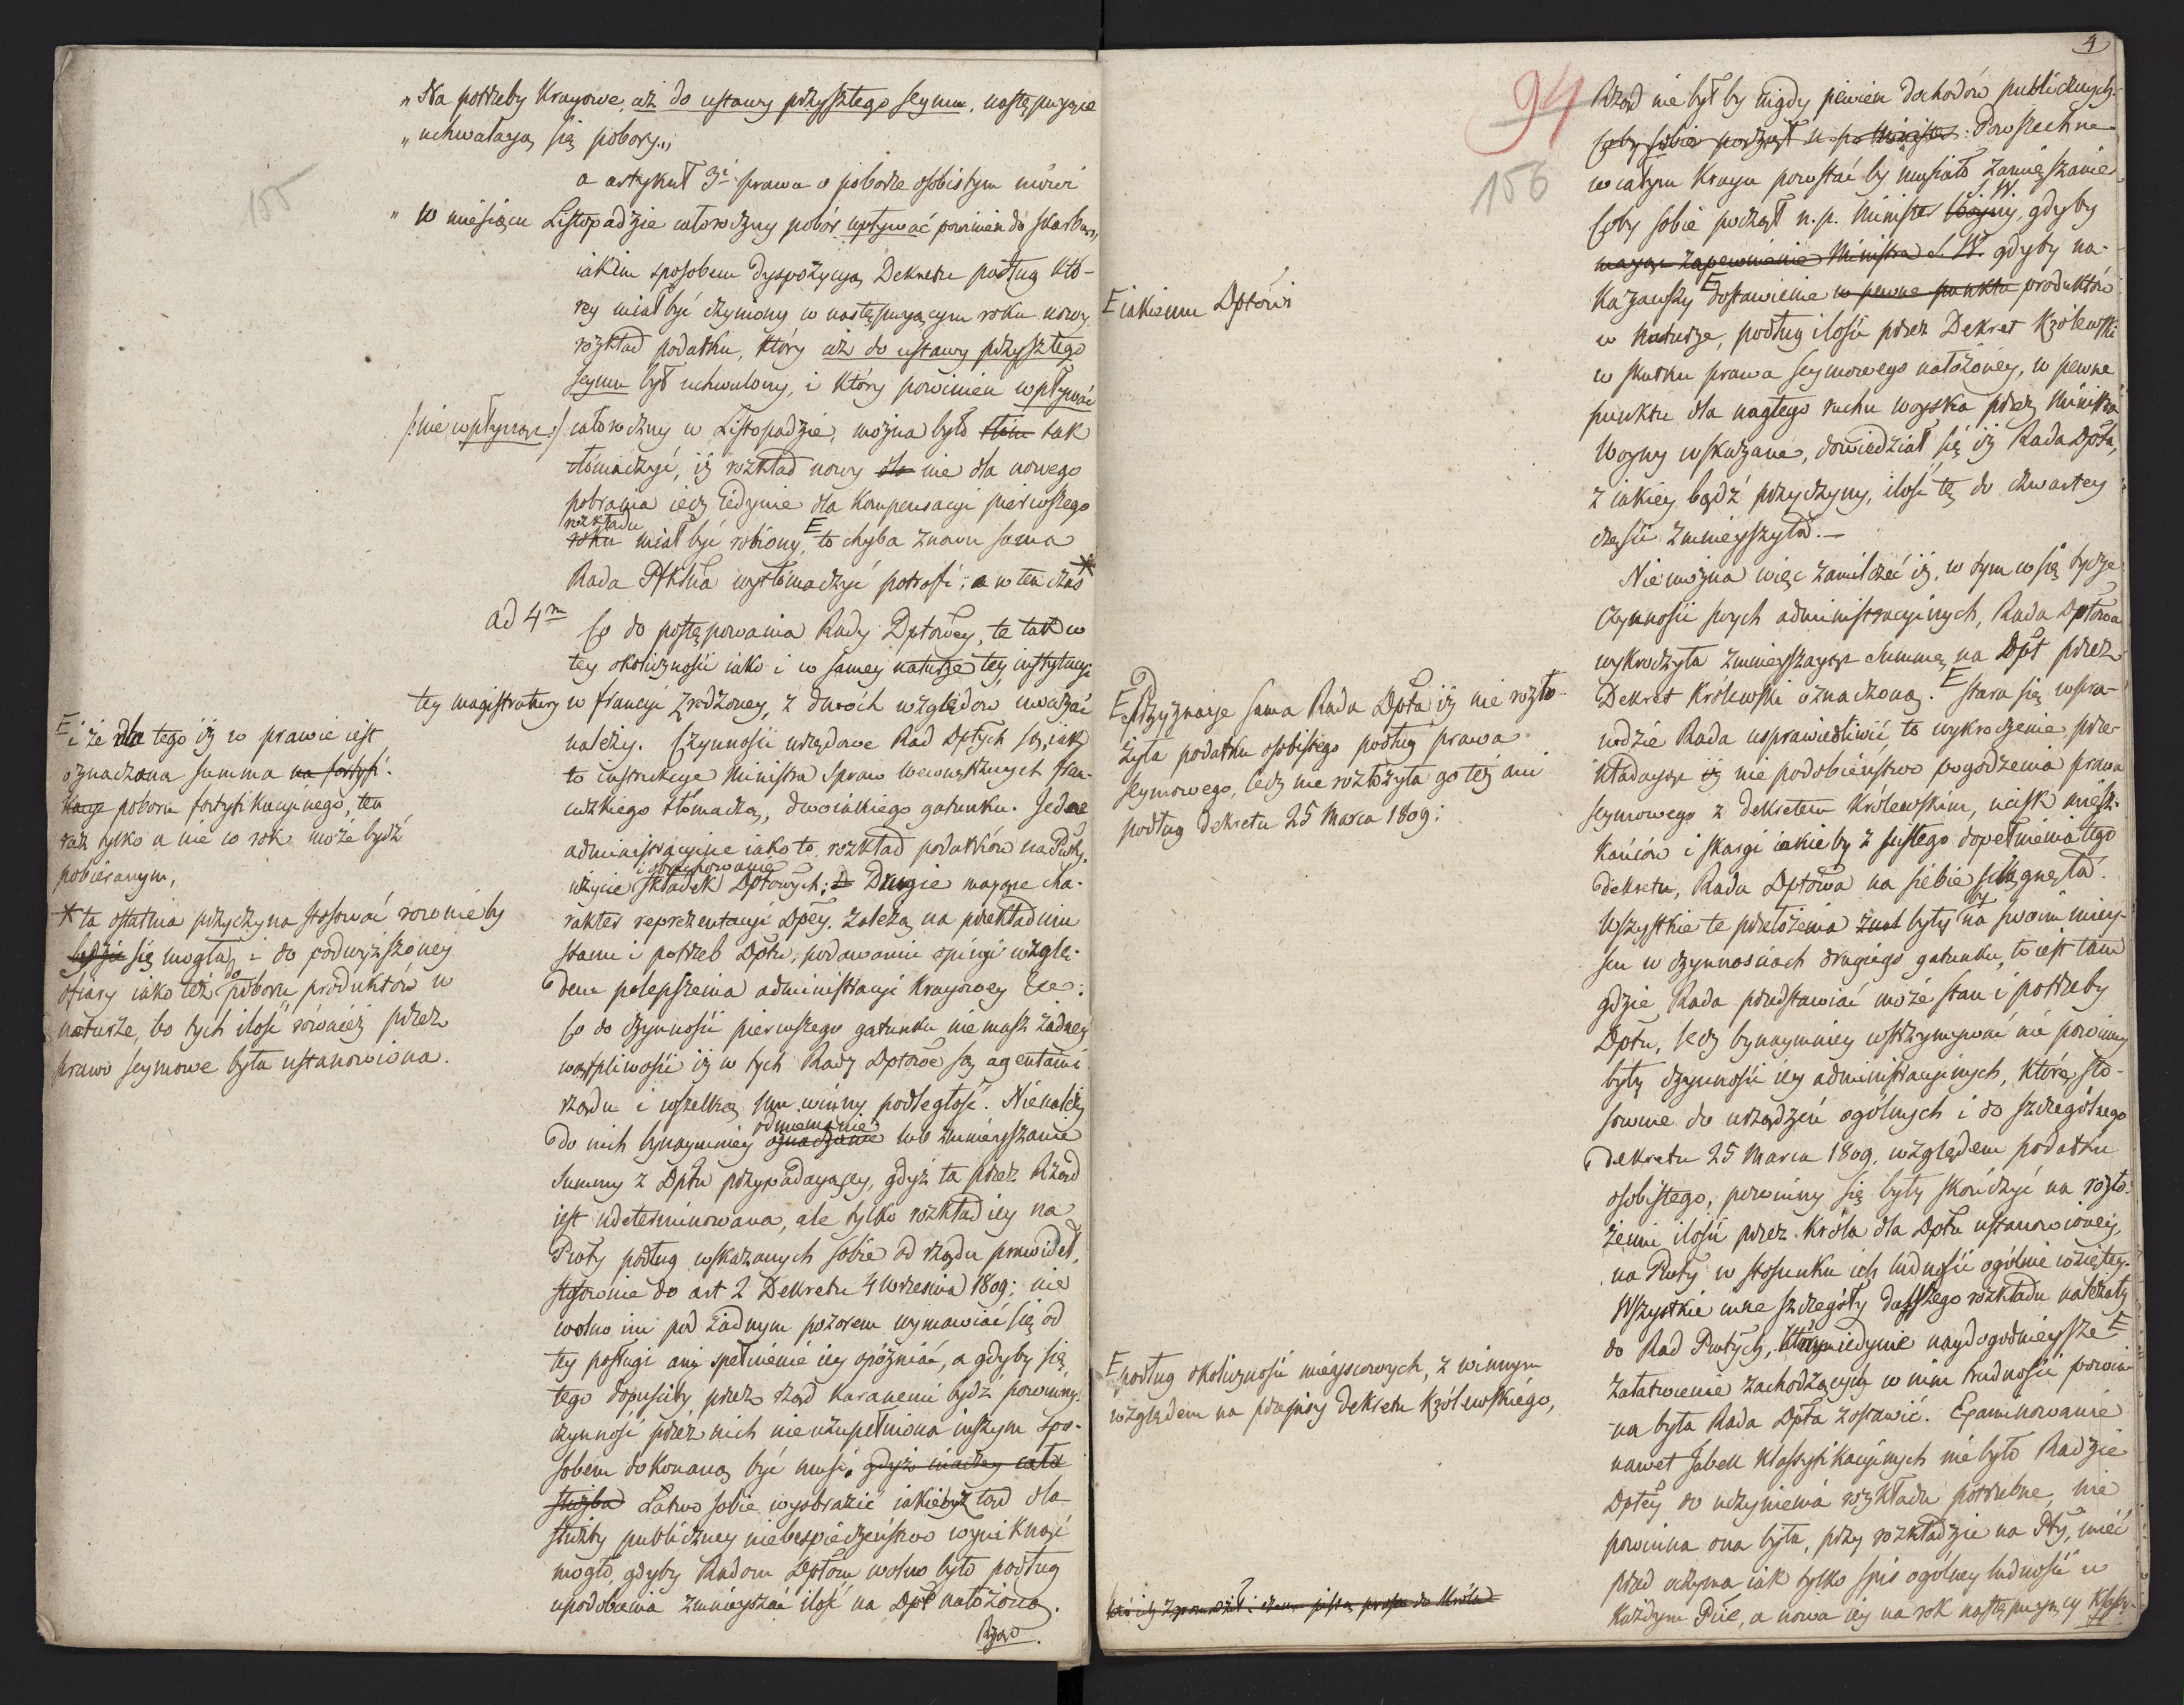 155
„Na potrzeby Kraiowe, aż do ustawy przyszłego Seymu, następuiące
„uchwalaią się pobory.„
a artykuł 3i prawa o poborze osobistym mówi
„W miesiącu Listopadzie całoroczny pobór wpływać powinien do skarbu„
iakim sposobem dyspozycyą Dekretu podług któ-
rey miał być czyniony w następuiącym roku nowy
rozkład podatku, który aż do ustawy przyszłego
Seymu był uchwalony, i który powinien wpływać
/:nie wpłynąć:/ całoroczny w Listopadzie, można było tak
tłómaczyć, iż rozkład nowy nie dla nowego
pobrania lecz iedynie dla kompensacyi pierwszego
rozkładu
roku miał być robiony, E to chyba znowu sama
Rada Pttka wytłómaczyć potrafi; a w ten czas *
ad 4m Co do postępowania Rady Dptowey, te tak w
tey okoliczności iako i w samey naturze tey instytucyi
tey magistratury w francyi zrodzoney, z dwóch względów uważać
należy. Czynności urzędowe Rad Dptych są, iak
to instrukcye Ministra Spraw wewnętrznych fran-
cuzkiego tłómaczą, dwoiakiego gatunku. Jedne
administracyine iako to, rozkład podatków na Pwty,
i obrachowanie
użycie składek Dptowych; Drugie maiące cha-
rakter reprezentacyi Dptey. zależą na przekładaniu
stanu i potrzeb Dptu, podawaniu opinyi wzglę-
dem polepszenia administracyi kraiowey &c:
Co do czynności pierwszego gatunku nie masz żadney
wątpliwości iż w tych Rady Dptowe są agentami
rządu i wszelką mu winny podległość. Nienależy
odmienianie
do nich bynaymniey oznaczenie lub zmnieyszanie
Summy z Dptu przypadaiącey, gdyż ta przez Rząd
iest udeterminowana, ale tylko rozkład iey na
Pwty podług wskazanych sobie od rządu prawideł,
stosownie do art 2 Dekretu 4 Wrzesnia 1809; nie
wolno im pod żadnym pozorem wymawiać się od
tey posługi ani spełnienie iey opóźniać, a gdyby się
tego dopuściły przez rząd karanemi bydź powinny
czynność przez nich nieuzupełniona inszym spo-
sobem dokonaną być musi, gdyż inaczey cała
służba Łatwo sobie wyobrazić iakieby ztąd dla
służby publiczney niebezpieczeństwo wyniknąć
mogło, gdyby Radom Dptom wolno było podług
upodobania zmnieyszać ilość na Dpt nałożoną.
Rząd.
E i że dla tego iż w prawie iest
oznaczona summa na fortyfi-
kacye poboru fortyfikacyinego, ten
raz tylko a nie co rok może bydź
pobieranym,
* ta ostatnia przyczyna stosować rownie by
się mogła i do podwyższoney
ofiary iako też do poboru produktów w
naturze, bo tych ilość również przez
prawo seymowe była ustanowiona.
4
94
156
Rząd nie byłby nigdy pewien dochodów publicznych.
coby sobie począł n. p. Minister: Powszechne
w całym Kraju powstać by musiało zamięszanie
S. W.
Coby sobie począł n. p. Minister Woyny, gdyby
maiąc zapewnienie Ministra S. W. gdyby na-
kazawszy E dostawienie w pewne punkta produktów
w naturze, podług ilości przez Dekret Królewski
w skutku prawa seymowego nałożoney, w pewne
punktu dla nagłego ruchu woyska przez Ministra
Woyny wskazane, dowiedział się iż Rada Dpta,
z iakiey bądź przyczyny, ilość tę do czwartey
części zmnieyszyła.—
Nie można więc zamilczeć iż, w tym co się tycze
czynności swych administracyinych, Rada Dptowa
wykroczyła zmnieyszaiąc summę na Dpt przez
Dekret Królewski oznaczoną. E stara się wpra-
wdzie Rada usprawiedliwić to wykroczenie prze-
kładaiąc iż nie podobieństwo pogodzenia prawa
seymowego z dekretem Królewskim, ucisk miesz-
kańców i skargi iakieby z ścisłego dopełnienia tego
dekretu, Rada Dptowa na siebie ściągnęła.
by
Wszystkie te przełożenia były na swoim miey-
scu w czynnościach drugiego gatunku, to iest tam
gdzie Rada przedstawiać może stan i potrzeby
Dptu, lecz bynaymniey wstrzymywać nie powinny
były czynności iey administracyinych, które sto-
sowne do urządzeń ogólnych i do szczególnego
dekretu 25 Marca 1809, względem podatku
osobistego, powinny się były skończyć na rozło-
żeniu ilości przez Króla dla Dptu ustanowioney,
na Pwty w stosunku ich ludności ogólnie wziętey.
Wszystkie inne szczegóły dalszego rozkładu należały
do Rad Pwtych, którym iedynie naydogodnieysze E
załatwienie zachodzących w nim trudności powin-
na była Rada Dpta zostawić. Examinowanie
nawet Tabell klassyfikacyinych nie było Radzie
Dptey do uczynienia rozkładu potrzebne, nie
powinna ona była, przy rozkładzie na Pty, mieć
przed oczyma iak tylko spis ogólney ludności w
każdym Pcie, a nowa iey na rok następuiący Klassy-
E iakiemu Dptowi
E Przyznaie sama Rada Dpta iż nie rozło-
żyła podatku osobistego podług prawa
seymowego, lecz nie rozłożyła go też ani
podług dekretu 25 Marca 1809:
E podług okoliczności mieyscowych, z winnym
względem na przepisy dekretu Królewskiego,